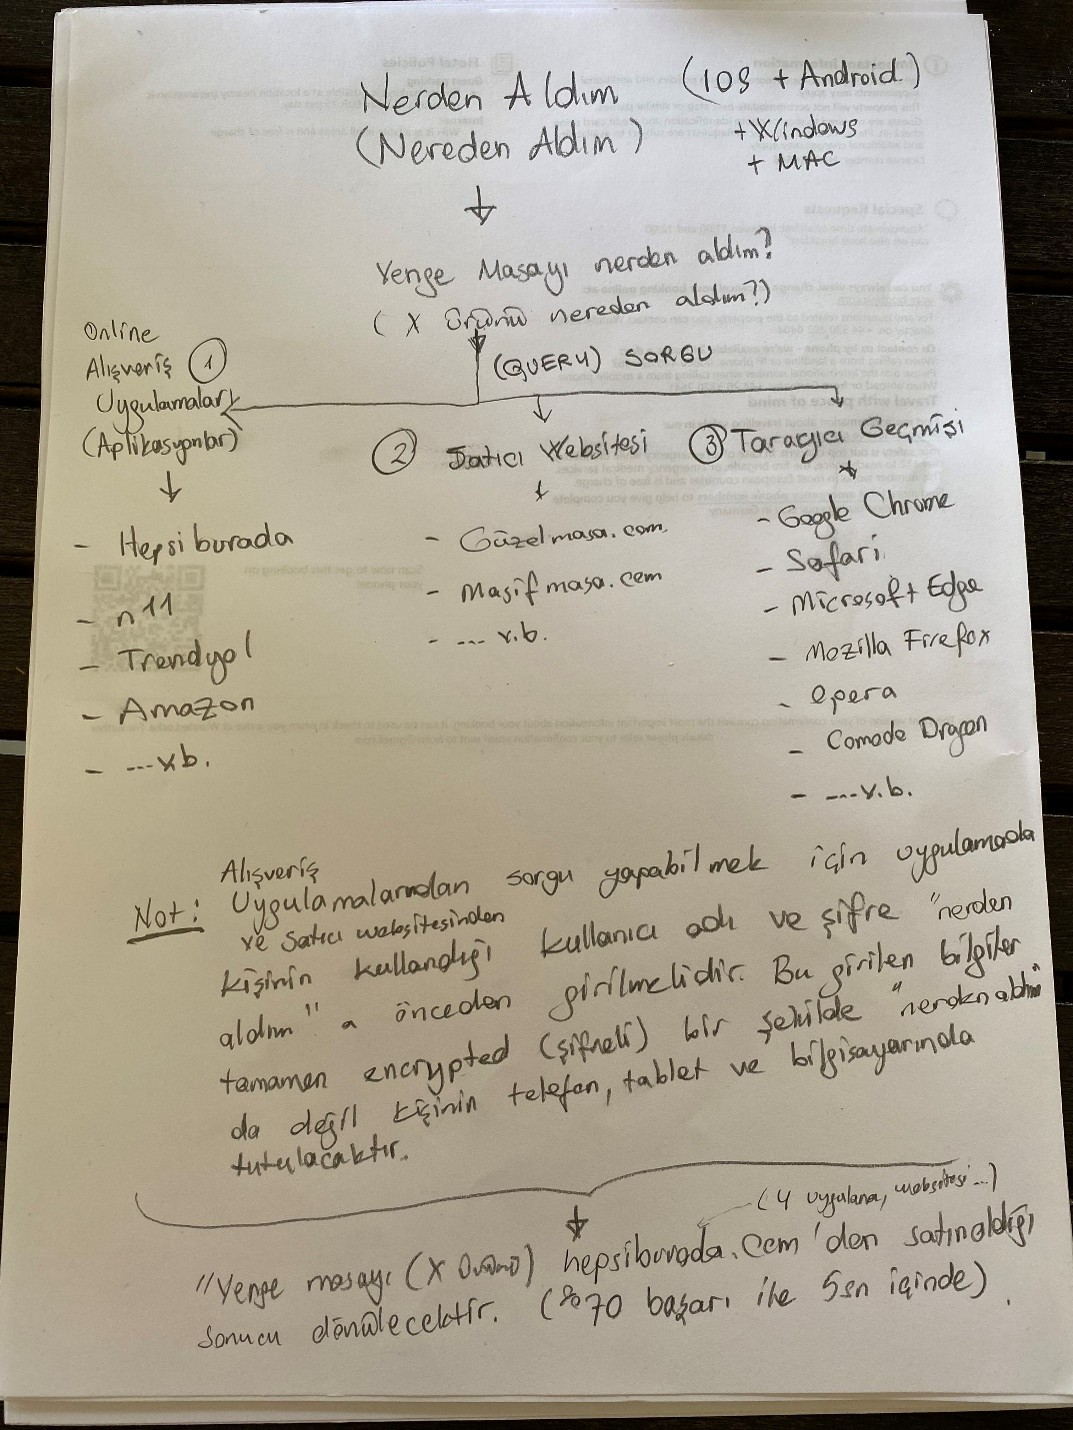 Nerden Aldım (IOS + Android)
(Nereden Aldım) + Windows
+ MAC
Yenge Masayı nerden aldım?
( X ürünü nereden aldım?)
(QUERY) SORGU
Online
Alışveriş 1
Uygulamaları
(Aplikasyonlar)
- Hepsiburada
- n11
- Trendyol
- Amazon
- ...v.b.
2 Satıcı Websitesi
- Güzelmasa.com
- Masifmasa.com
- ... v.b.
3 Tarayıcı Geçmişi
- Google Chrome
- Safari
- Microsoft Edge
- Mozilla Firefox
- Opera
- Comodo Dragon
- ...v.b.
Alışveriş
Not: Uygulamalarından sorgu yapabilmek için uygulamada
ve satıcı websitesinden
kişinin kullandığı kullanıcı adı ve şifre "nerden
aldım" a önceden girilmelidir. Bu girilen bilgiler
tamamen encrypted (şifreli) bir şekilde "nerden aldım"
da değil kişinin telefon, tablet ve bilgisayarında
tutulacaktır.
(4 uygulama, websitesi...)
"Yenge masayı (X ürünü) hepsiburada.com'den satınaldığı
sonucu dönülecektir. (%70 başarı ile 5sn içinde).